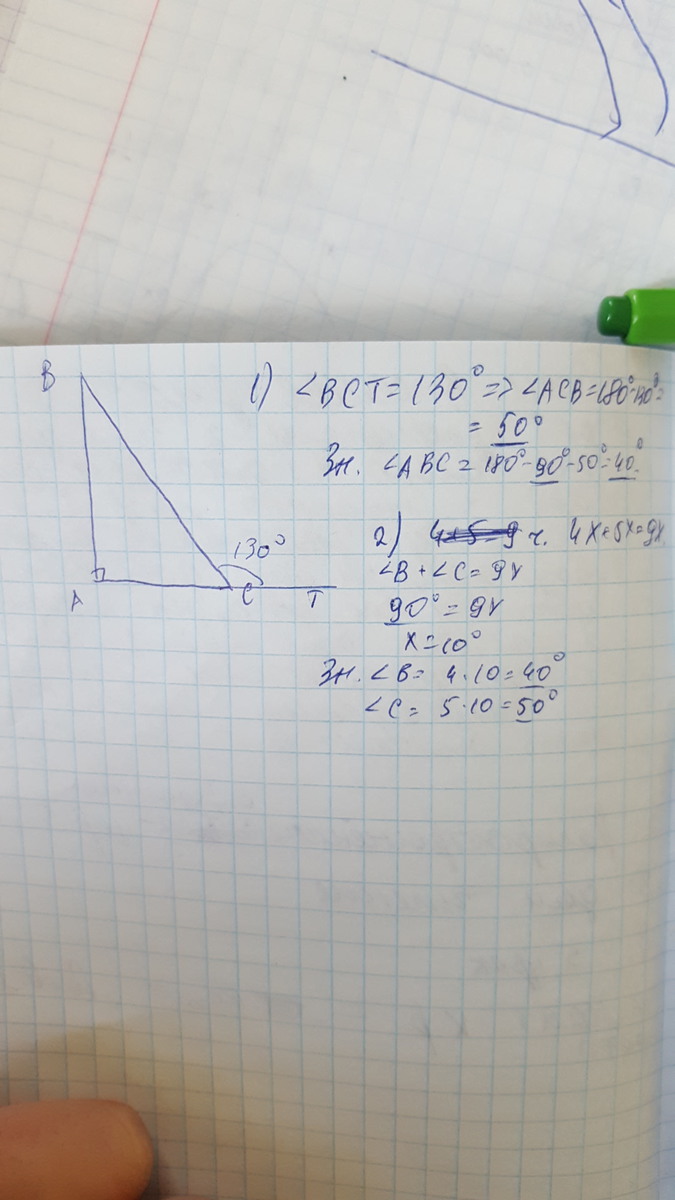 B
1) ∠BCT = 130° => ∠ACB = 180°-130° =
= 50°
Зн. ∠ABC = 180°-90°-50°=40°.
130°
A
C
T
2) 4+5=9 ч. 4x+5x=9x
∠B + ∠C = 9x
90° = 9x
x=10°
Зн. ∠B = 4·10 = 40°
∠C = 5·10 = 50°